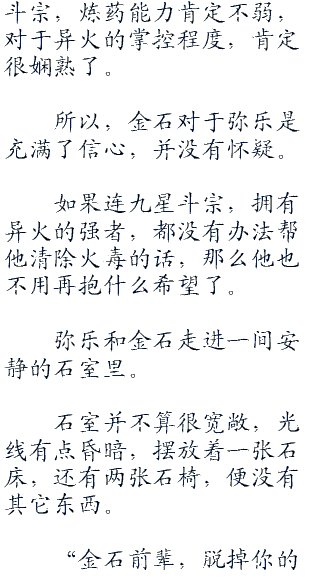 斗宗，炼药能力肯定不弱，
对于异火的掌控程度，肯定
很娴熟了。
所以，金石对于弥乐是
充满了信心，并没有怀疑。
如果连九星斗宗，拥有
异火的强者，都没有办法帮
他清除火毒的话，那么他也
不用再抱什么希望了。
弥乐和金石走进一间安
静的石室里。
石室并不算很宽敞，光
线有点昏暗，摆放着一张石
床，还有两张石椅，便没有
其它东西。
“金石前辈，脱掉你的